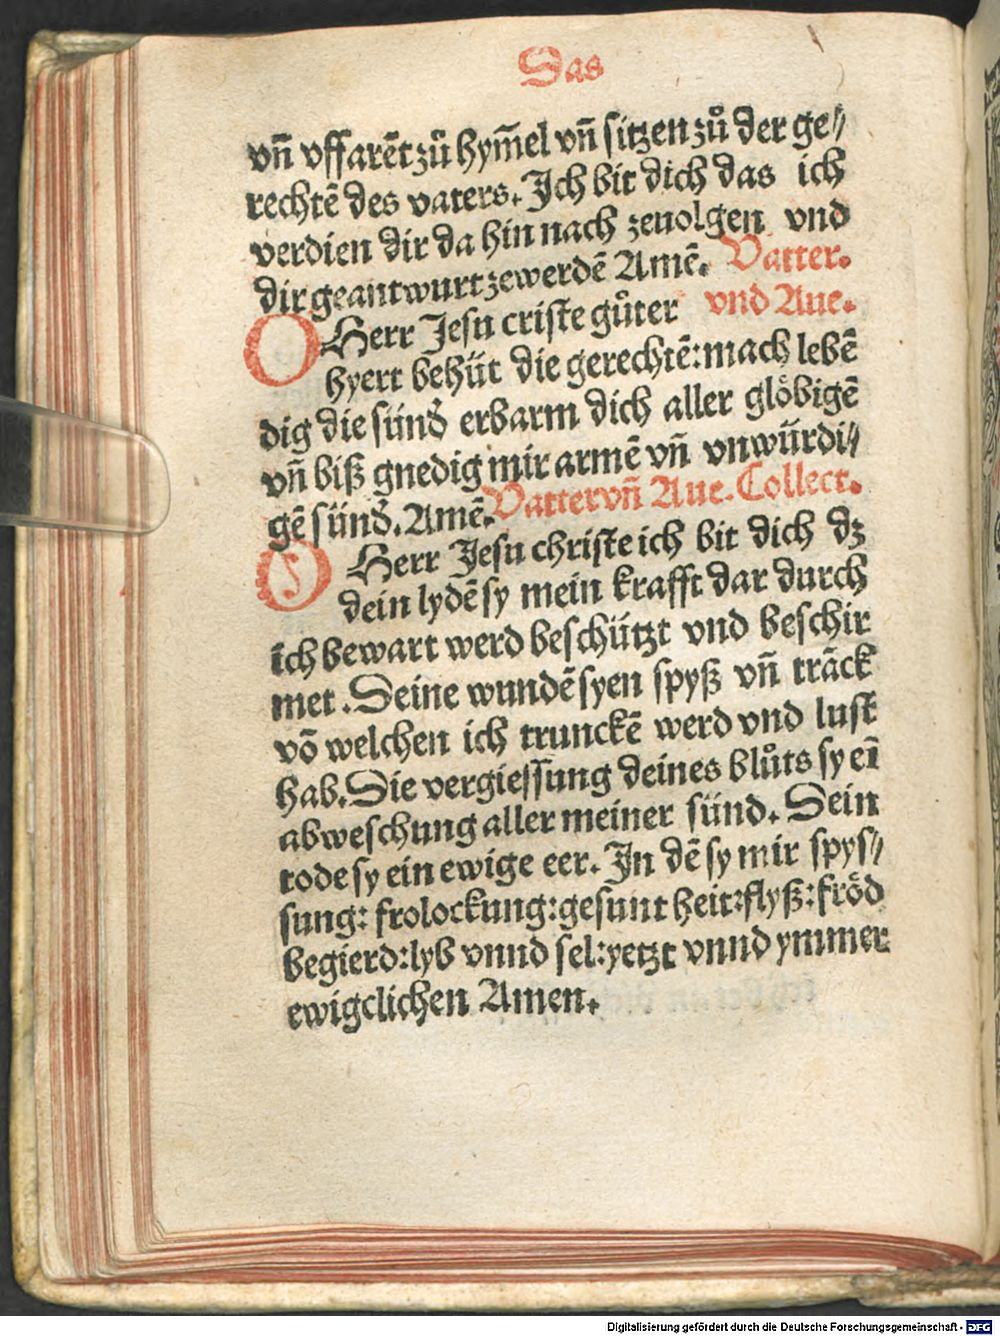 Das
vn̄ vffarēt zů hym̄el vn̄ sitzen zů der ge⸗
rechtē des vaters. Ich bit dich das ich
verdien dir da hin nach zeuolgen vnd
dir geantwurt zewerdē Amē. Vatter.
vnd Aue.
O Herr Jesu criste gůter
hyert behüt die gerechtē: mach lebē
dig die sünd̕ erbarm dich aller glöbigē
vn̄ biß gnedig mir armē vn̄ vnwürdi⸗
gē sünd̕. Amē. Vatter vn̄ Aue. Collect.
O Herr Jesu christe ich bit dich dz
dein lydē sy mein krafft dar durch
ich bewart werd beschützt vnd beschir
met. Deine wundē syen spyß vn̄ trāck
vō welchen ich trunckē werd vnd lust
hab. Die vergiessung deines blůts sy eī
abweschung aller meiner sünd. Dein
tode sy ein ewige eer. In dē sy mir spys⸗
sung: frolockung: gesuntheit: flyß: fröd
begierd: lyb vnnd sel: yetzt vnnd ymmer
ewigclichen Amen.
Digitalisierung gefördert durch die Deutsche Forschungsgemeinschaft - DFG